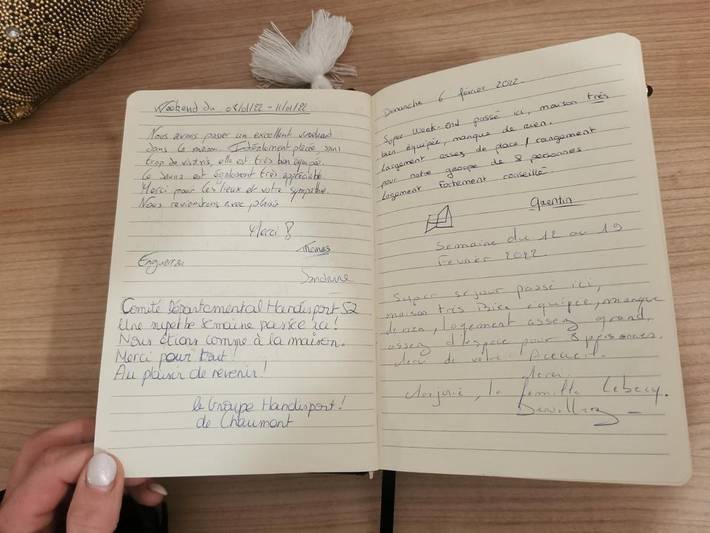 Weekend du 08/01/22 - 11/01/22
Nous avons passer un excellent weekend
dans la maison. Idéalement placée, sans
trop de voisins, elle est très bien équipée.
Le sauna est également très appréciable.
Merci pour les lieux et votre sympathie.
Nous reviendrons avec plaisir
Merci !
Thomas
Enguerran
Sandrine
Comité Départemental Handisport 52
Une superbe semaine passée ici !
Nous étions comme à la maison.
Merci pour tout !
Au plaisir de revenir !
le Groupe Handisport !
de Chaumont
Dimanche 6 février 2022.
Super Week-end passé ici, maison très
bien équipée, manque de rien.
Largement assez de place / rangement
pour notre groupe de 8 personnes
Logement fortement conseillé.
Quentin
Semaine du 12 au 19
Fevrier 2022.
Super sejour passé ici,
maison très bien equipée, manque
de rien, logement assez grand,
assez d'espace pour 8 personnes.
Merci de votre Accueil
Merci
Marjorie, la famille Lebecq.